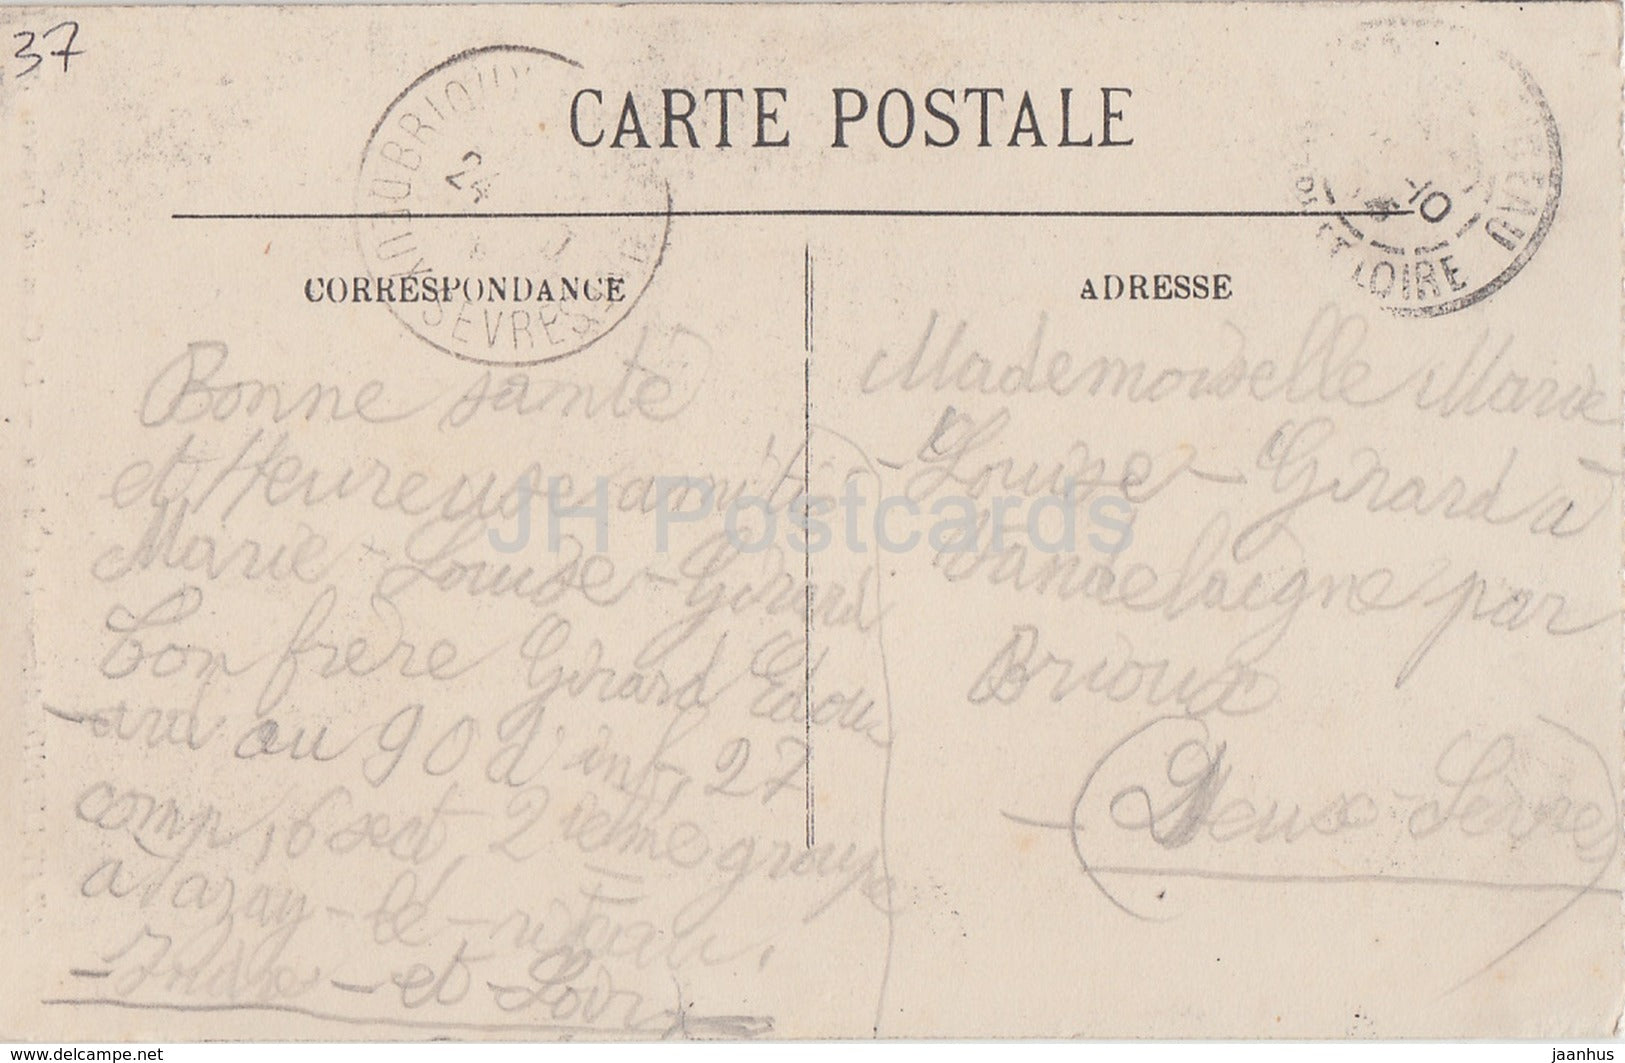 37
CARTE POSTALE
BRIOUX
24
SEVRES
10
ET LOIRE
CORRESPONDANCE
ADRESSE
Bonne santé
et Heureuse amitié
Marie-Louise-Girard
Ton frère Girard Edou-
-ard au 90 d'inf, 27
comp, 6 sect, 2 ième groupe
a azay-le-rideau,
-Indre-et-Loire
Mademoiselle Marie
-Louise-Girard à
Vandelaigne par
Brioux
(Deux-Sèvres)
JH Postcards
www.delcampe.net
jaanhus